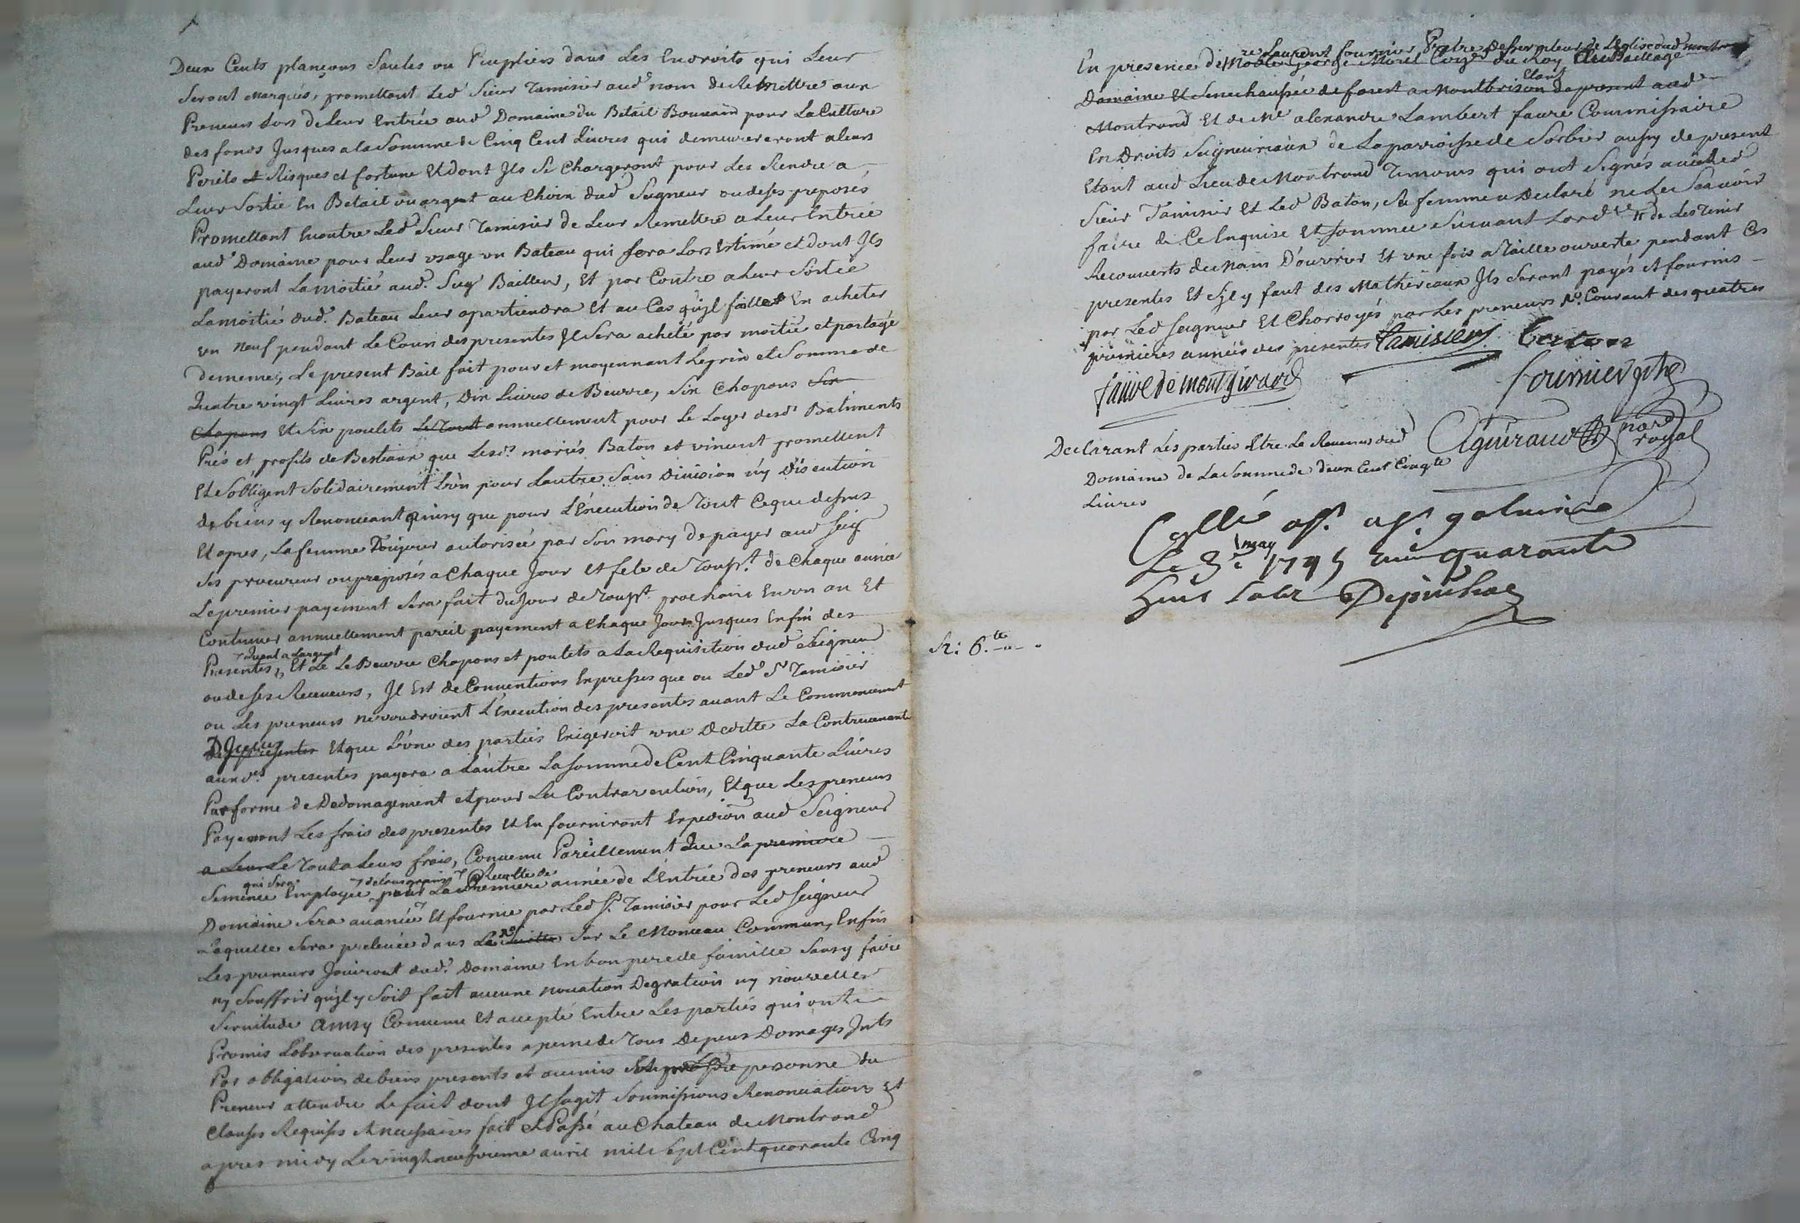 Deux Cents plançons Saules ou Peupliers dans Les Endroits qui Leur
Seront marqués, promettant Led Sieur Tamisier aud nom de Remettre aux
Preneurs Lors de Leur Entrée aud Domaine du Betail pour La Culture
des fonds Jusques a la Somme de Cinq Cent Livres qui demeureront a leurs
Perils Risques et fortune Et dont Ils Se Chargeront pour Les Rendre a
Leur Sortie En Betail ou argent au Choix dud Seigneur ou de ses preposés
Promettant Led Sieur Tamisier de Leur Remettre a Leur Entrée
aud Domaine pour Leur usage un Bateau qui sera Lors Estimé et dont Ils
payeront La moitié aud Seigr Bailleur, Et par Contre a Leur Sortie
La moitié dud Bateau Leur apartiendra Et au Cas qu'il fallut En acheter
un neuf pendant Le Cours des presentes Il Sera acheté par moitié et partagé
de meme; Le present Bail fait pour et moyennant Le prix et Somme de
Quatre vingt Livres argent, Dix Livres de Beurre, Six Chapons Six
Chapons Et Six poulets Le Tout annuellement pour Le Loyer desd Batiments
Prés et profits de Bestiaux que Lesd mariés Baton et promettent
Et S'obligent Solidairement L'un pour L'autre Sans Division ny Discution
de biens y Renonceant ainsy que pour L'Execution de Tout Ce que dessus
Et apres, La femme Toujours autorisée par Son mary de payer aud Seigr
Ses procureur ou preposés a Chaque Jour et fete de Touspt de Chaque année
Le premier payement Sera fait du Jour de Touspt prochain En un an Et
Continuer annuellement pareil payement a Chaque Jour Jusques Enfin des
Presentes, Et Le Beurre Chapons et poulets a La Requisition dud Seigneur
ou de ses Receveurs, Il Est de Conventions Expresses que ou Led Sr Tamisier
ou Les preneurs ne voudroient L'Execution des presentes avant Le Commencement
D'Icelles Et que L'une des parties Exigeroit une La Contrevenante
auxd presentes payera a L'autre La Somme de Cent Cinquante Livres
Par forme de Dedomagement et pour La Contravention, Et que Les preneurs
Payeront Les frais des presentes Et En fourniront Expedition aud Seigneur
a Leur Le Tout a Leurs frais, Convenu Pareillement que La premiere
qui Sera de tous grains Recolte de
Semence Employée pour La Premiere année de L'Entrée des preneurs aud
Domaine Sera avancée Et fournie par Led Sr Tamisier pour Led Seigneur
Laquelle Sera prelevée dans Sur Le Monceau Commun, Enfin
Les preneurs Jouiront dud Domaine En bon pere de famille Sans y faire
ny Souffrir qu'il y Soit fait aucune novation Degration ny nouvelles
Servitude ainsy Convenu Et accepté Entre Les parties qui ont
Promis L'observation des presentes a peine de Tous Depens Domages Ints
Par obligation de biens presents et avenirs personne du
Preneur attendu Le fait dont Il S'agit Soumissions Renonciations Et
Clauses Requises et necessaires fait et Passé au Chateau de Montrond
apres midy Le vingt neufvieme avril mil Sept Cent quarante Cinq
En presence de Mre Laurent fournier Pretre Desserviteur de L'Eglise dud Montrond
Noble George Morel Consr du Roy au Bailliage
Domaine Et Senechaussée de forest a Montbrison de present Etant aud
Montrond Et de Me alexandre Lambert faure Commissaire
En Droits Seigneuriaux de La parroisse de Sorbier aussy de present
Etant aud Lieu de Montrond Temoins qui ont Signés avec led
Sieur Tamisier Et Led Baton, Sa femme a Declaré ne Le Scavoir
faire de Ce Enquise Et Sommée Suivant L'ord. de Les Tenir
Recouverts de main D'ouvrier Et une fois a Taille ouverte pendant Ces
presentes Et S'il y faut des Matheriaux Ils Seront payés et fournis
par Led Seigneur Et Charroyés par Les preneurs Courant des quatres
premieres années des presentes Tamisier
faure de montgirard
fournier ptre
Declarant Les parties Etre Le Revenu dud
Aguiraud nore royal
Domaine de La Somme de deux Cent Cinqte
Livres
Collé à St galmier
Le 3e may 1745 Reçu quarante
huit Sols Depuichal
R: 6.tt